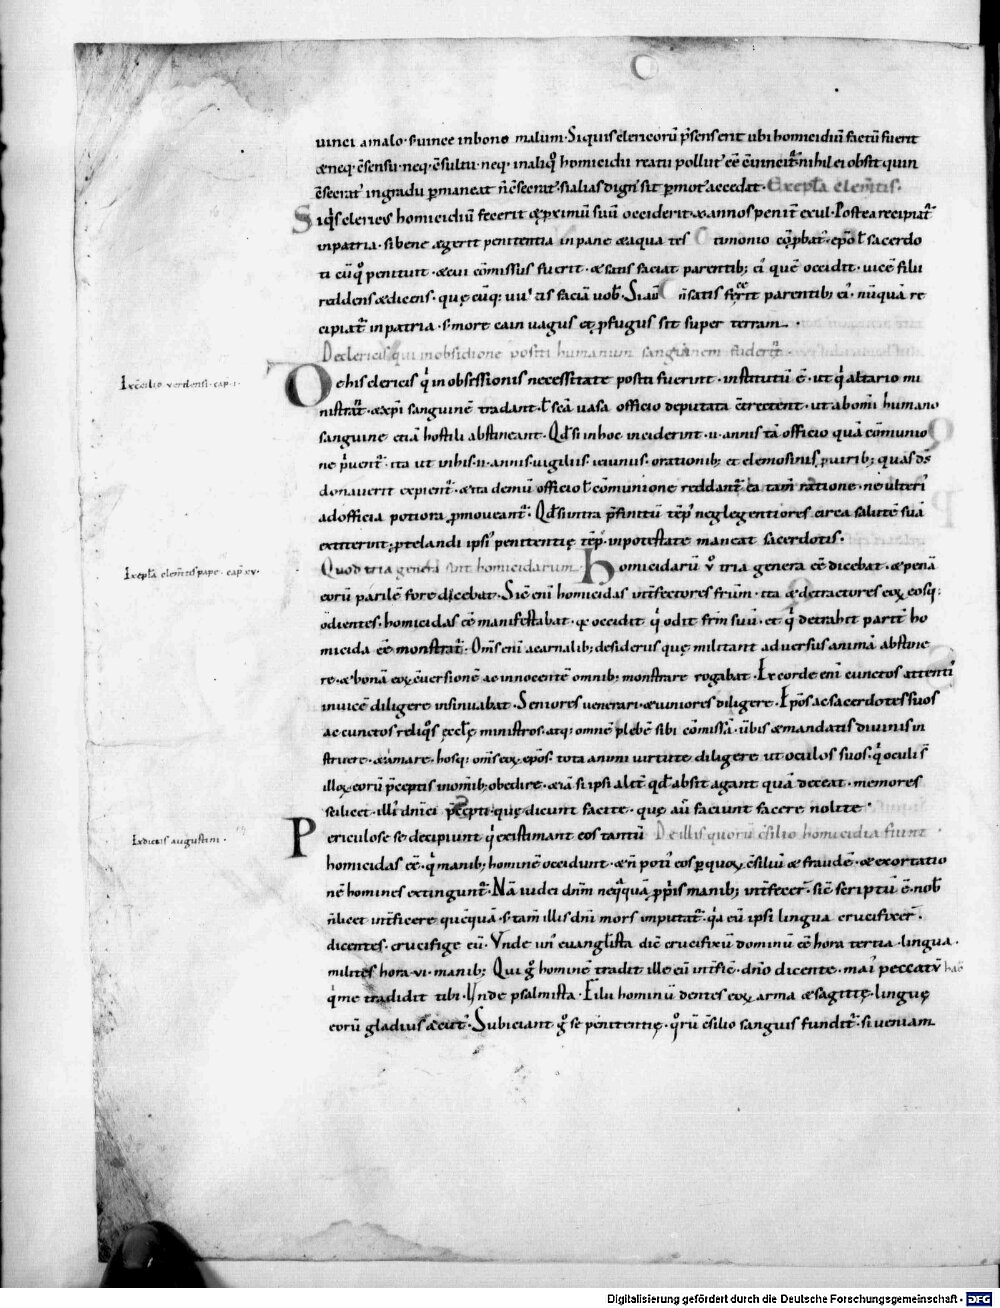 uinci a malo · s; uince in bono malum · Siquis clericorũ p̃senserit ubi homicidiũ factũ fuerit
& neq; c̃sensu · neq; c̃sultu · neq; in aliq̊ homicidii reatu pollut᾿ cẽ c̃uincit᾿ nihil ei obsit quin
c̃secrat᾿ in gradu p̱maneat ñ c̃secrat᾿ si alias dign᾿ sit p̱mot᾿ accedat · Ex ep̃la clem̃tis ·
Siq̇s clericus homicidiũ fecerit & p̱ximũ suũ occiderit · x annos penit᾿ exul · Postea recipiat᾿
in patria · si bene egerit penitentia in pane & aqua testimonio cõp̱bat᾿ · ep̃o ł sacerdo
ti cũ q̊ penituit · & cui cõmissus fuerit · & satis faciat parentib; ei᾿ quẽ occidit · uice filii
reddens & dicens · quę cũq; uul᾿tis faciã uob᾿ · Si aũ ñ satis fecerit parentib; ei᾿ · nũquã re
cipiat᾿ in patria · s; more cain uagus et p̱fugus sit super terram ·
De clericis qui in obsidione positi humanum sanguinem fuderĩt ·
Ex c̃cilio verdensi · cap · i ·
De his clericis q̇ in obsessionis necessitate positi fuerint · institutũ ẽ · ut q̇ altario mi
nistrant᾿ · & xp̃i sanguinẽ tradant · ł sc̃a uasa officio deputata c̃trectent · ut ab om̃i humano
sanguine etiã hostili abstineant · Qd̃ si in hoc inciderint · ii · annis tã officio quã cõmunio
ne ṗuent᾿ · ita ut in his · ii · annis · uigiliis ieiuniis · orationib; et elemosinis p̱ uirib; quas ds̃
donauerit expient᾿ · & ita demũ officio ł cõmunione reddant᾿ ea tam̃ ratione · ne ulteri᾿
ad officia potiora p̱moueant᾿ · Qd̃ si intra p̃finitũ tẽp᾿ neglegentiores circa salutẽ suã
extiterint · p̱telandi ipsi᾿ penitentię tẽp᾿ · in potestate maneat sacerdotis ·
Quod tria genera sint homicidarum ·
Ex ep̃la clem̃tis pape · cap · xv ·
Homicidarũ ů tria genera cẽ dicebat · & penã
eorũ parilẽ fore dicebat · Sic̃ eni᾿ homicidas int̃fectores frũm · ita & detractores eoꝝ eosq;
õdientes · homicidas cẽ manifestabat · q̃ occidit q̇ odit frm̃ suũ · et q̇ detrahit parit᾿ ho
micida cẽ monstrat᾿ · Om̃s eni᾿ a carnalib; desideriis quę militant aduersus animã abstine
re · & bonã eoꝝ c̃uersionẽ ac innocentẽ omnib; monstrare rogabat · Ex corde eni᾿ cunctos attenti᾿
inuicẽ diligere insinuabat · Seniores uenerari · & iuniores diligere · Ep̃os ac sacerdotes suos
ac cunctos reliq̊s ęccłę ministros · atq; omnẽ plebẽ sibi cõmissã · uerbis & mandatis diuinis in
struere · & amare · hosq; om̃s eoꝝ ep̃os · tota animi uirtute diligere ut oculos suos · q̇ oculi s̃
illoꝝ · eorũ p̃ceptis in omnib; obedire · etiã si ipsi alit᾿ qd̃ absit agant quã deceat · memores
scilicet · illi᾿ dnĩci p̃cepti · quę dicunt facite · quę aũ faciunt facere nolite ·
Ex dictis augustini ·
Periculose se decipiunt q̇ existimant eos tantũ De illis quorũ c̃silio homicidia fiunt ·
homicidas cẽ · q̇ manib; hominẽ occidunt · & ñ poti᾿ eos p̱ quoꝝ c̃siliũ & fraudẽ · & exortatio
nẽ homines extingunt᾿ · Nã iudei dnm̃ neq̇quã p̱ṗis manib; int̃fecer᾿ · sic̃ scriptũ ẽ · nob᾿
ñ licet int̃ficere quẽquã · s; tam̃ illis dnĩ mors imputat᾿ · q̇a eũ ipsi lingua crucifixer᾿ ·
dicentes · crucifige eũ · Vnde un᾿ euanglista dic̃ crucifixũ dominũ cẽ hora tertia · lingua ·
milites hora · vi · manib; Qui g̊ hominẽ tradit ille eũ int̃fic̃ · dnõ dicente · mai᾿ peccatũ hab̃
q̇ me tradidit tibi · Vnde psalmista · Filii hominũ dentes eoꝝ arma & sagittę · linguę
eorũ gladius acut᾿ · Subiciant g̊ se penitentię · q̊rũ c̃silio sanguis fundit᾿ · si ueniam
Digitalisierung gefördert durch die Deutsche Forschungsgemeinschaft - DFG